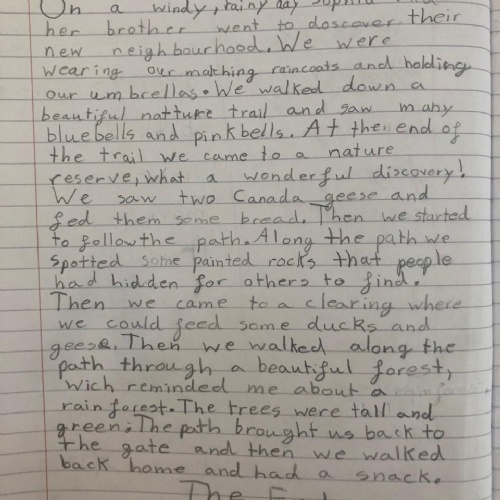 On a windy, rainy day Sophia and
her brother went to doscover their
new neighbourhood. We were
wearing our matching raincoats and holding
our umbrellas. We walked down a
beautiful natture trail and saw many
bluebells and pinkbells. At the end of
the trail we came to a nature
reserve, what a wonderful discovery!
We saw two Canada geese and
fed them some bread. Then we started
to follow the path. Along the path we
spotted some painted rocks that people
had hidden for others to find.
Then we came to a clearing where
we could feed some ducks and
geese. Then we walked along the
path through a beautiful forest,
wich reminded me about a
rainforest. The trees were tall and
green. The path brought us back to
the gate and then we walked
back home and had a snack.
The End